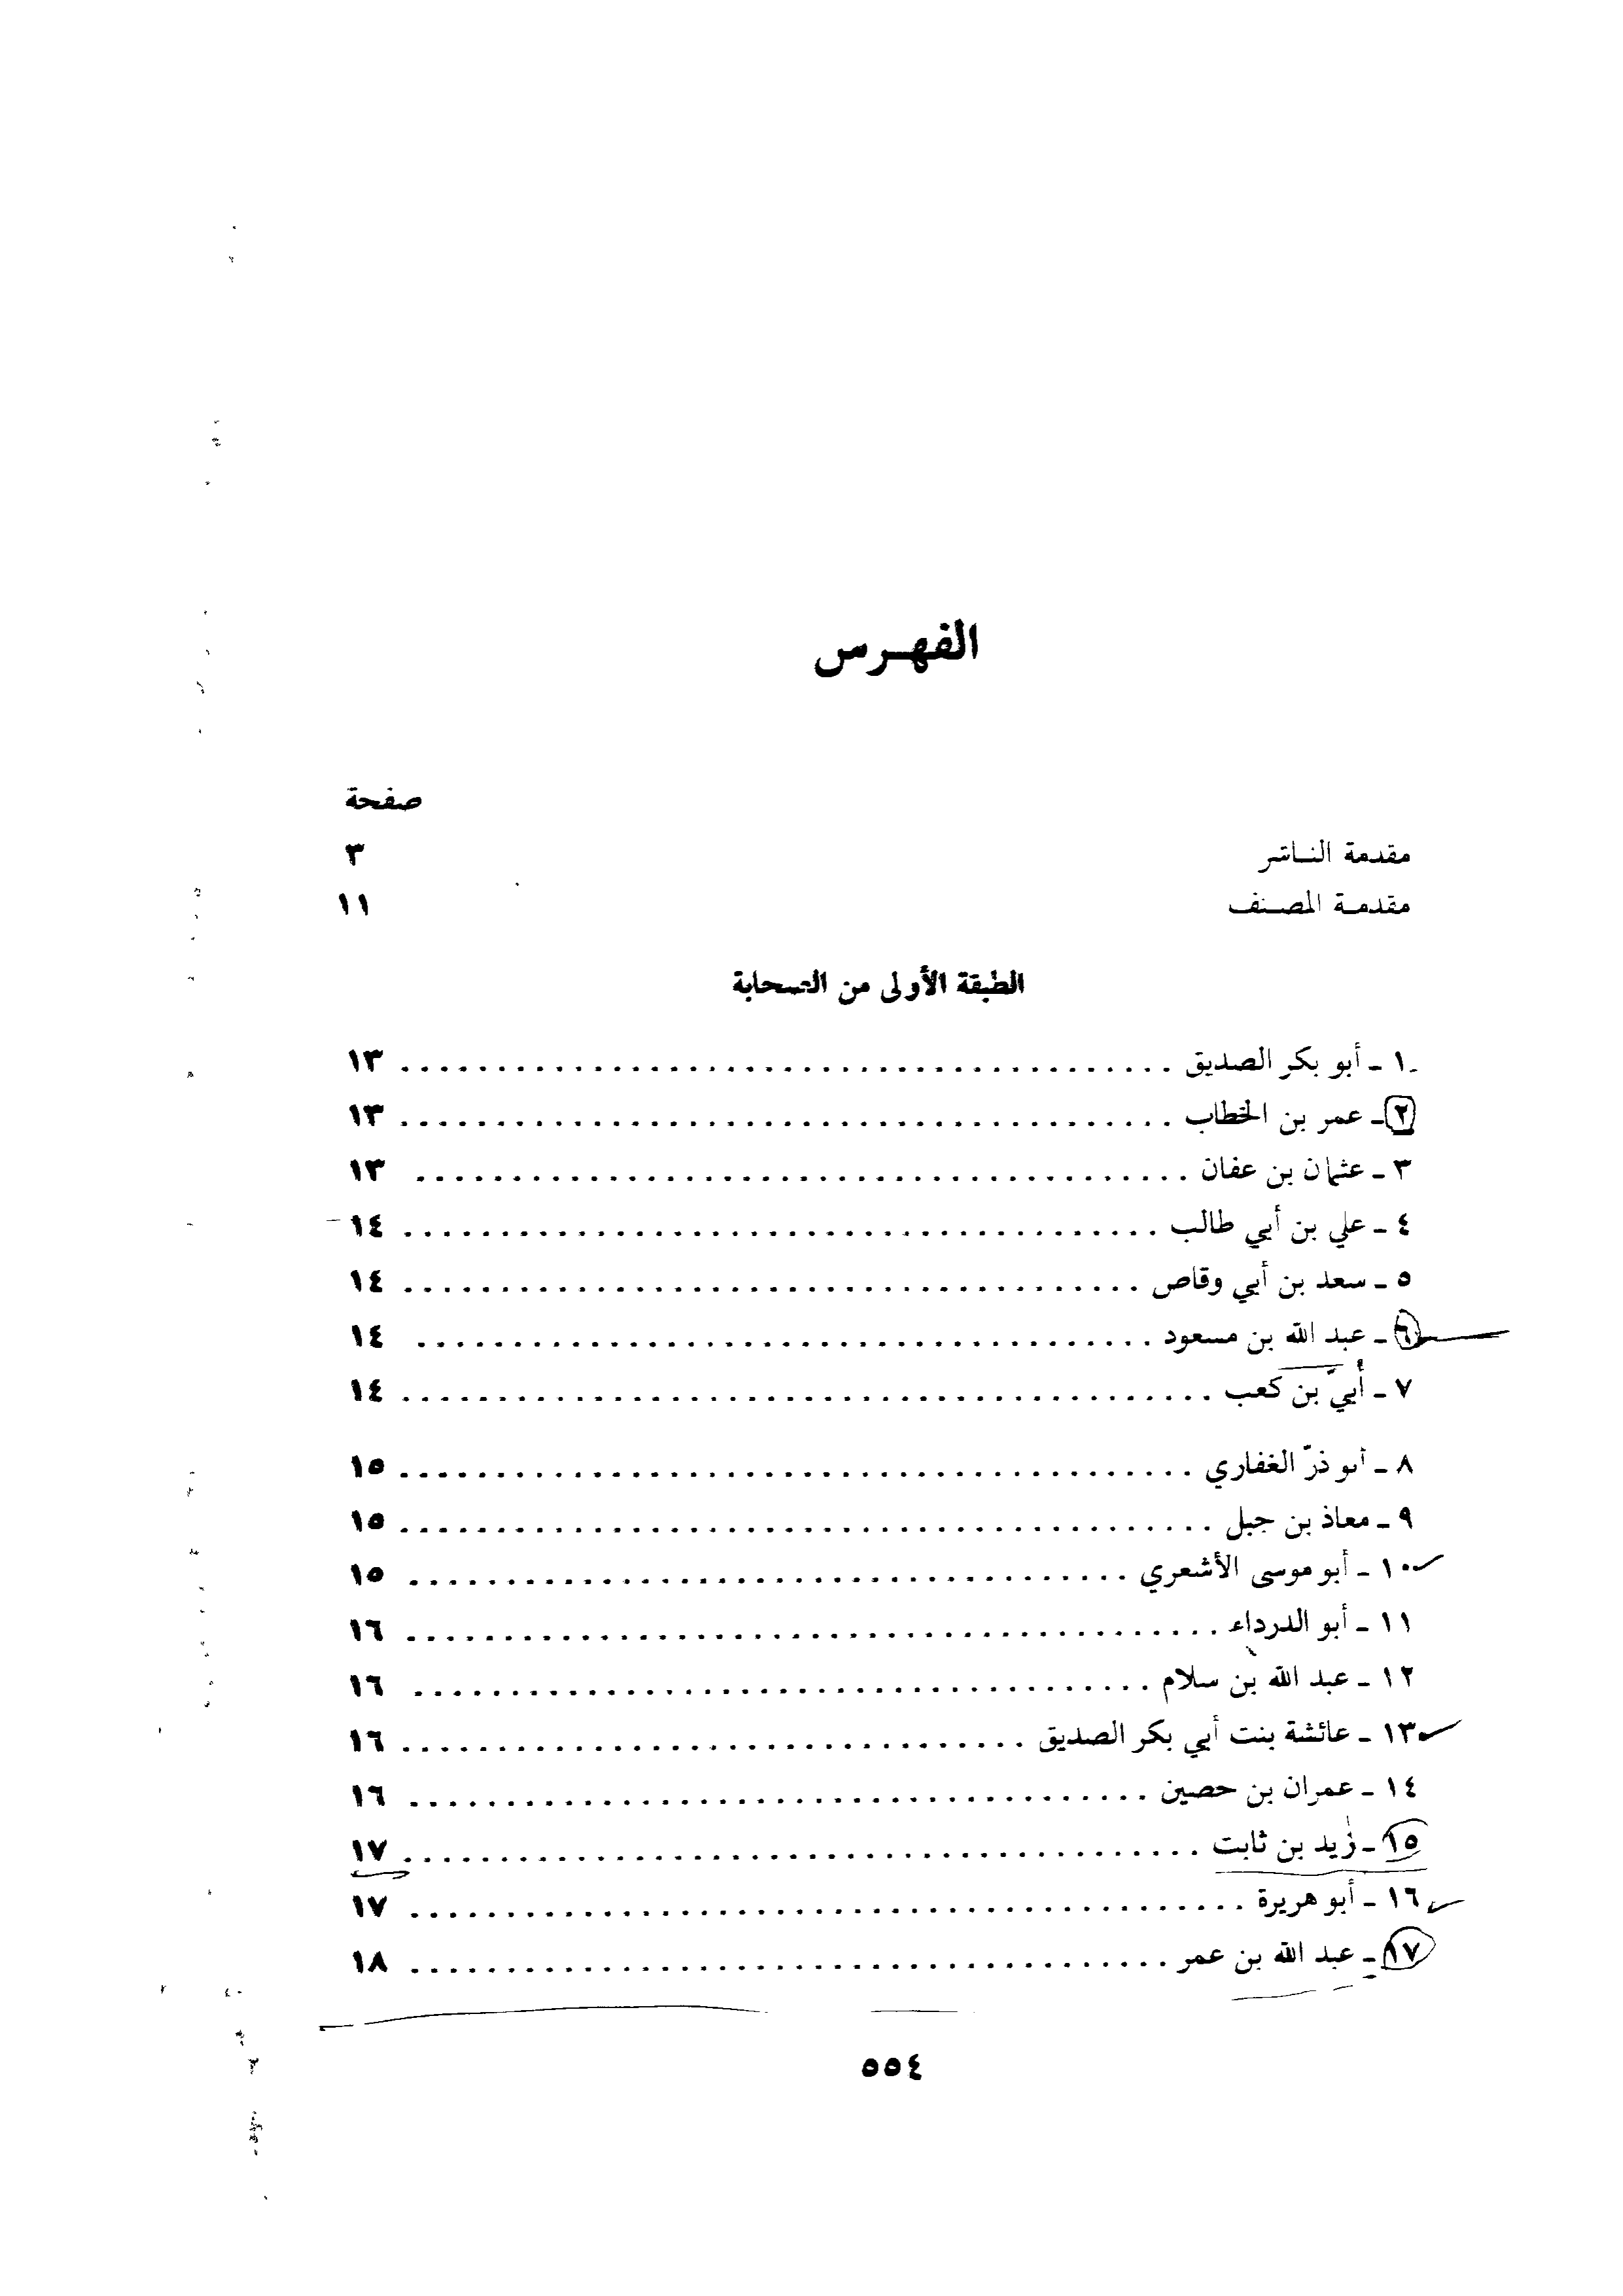 الفهـرس
صفحة
مقدمة النـاشر ٣
مقدمـة المصـنف ١١
الطبقة الأولى من الصحابة
١ - أبو بكر الصديق ........................................ ١٣
٢ - عمر بن الخطاب ........................................ ١٣
٣ - عثمان بن عفان ........................................ ١٣
٤ - علي بن أبي طالب ........................................ ١٤
٥ - سعد بن أبي وقاص ........................................ ١٤
٦ - عبد الله بن مسعود ........................................ ١٤
٧ - أُبيّ بن كعب ........................................ ١٤
٨ - أبو ذرّ الغفاري ........................................ ١٥
٩ - معاذ بن جبل ........................................ ١٥
١٠ - أبو موسى الأشعري ........................................ ١٥
١١ - أبو الدرداء ........................................ ١٦
١٢ - عبد الله بن سلام ........................................ ١٦
١٣ - عائشة بنت أبي بكر الصديق ................................ ١٦
١٤ - عمران بن حصين ........................................ ١٦
١٥ - زيد بن ثابت ........................................ ١٧
١٦ - أبو هريرة ........................................ ١٧
١٧ - عبد الله بن عمر ........................................ ١٨
٥٥٤